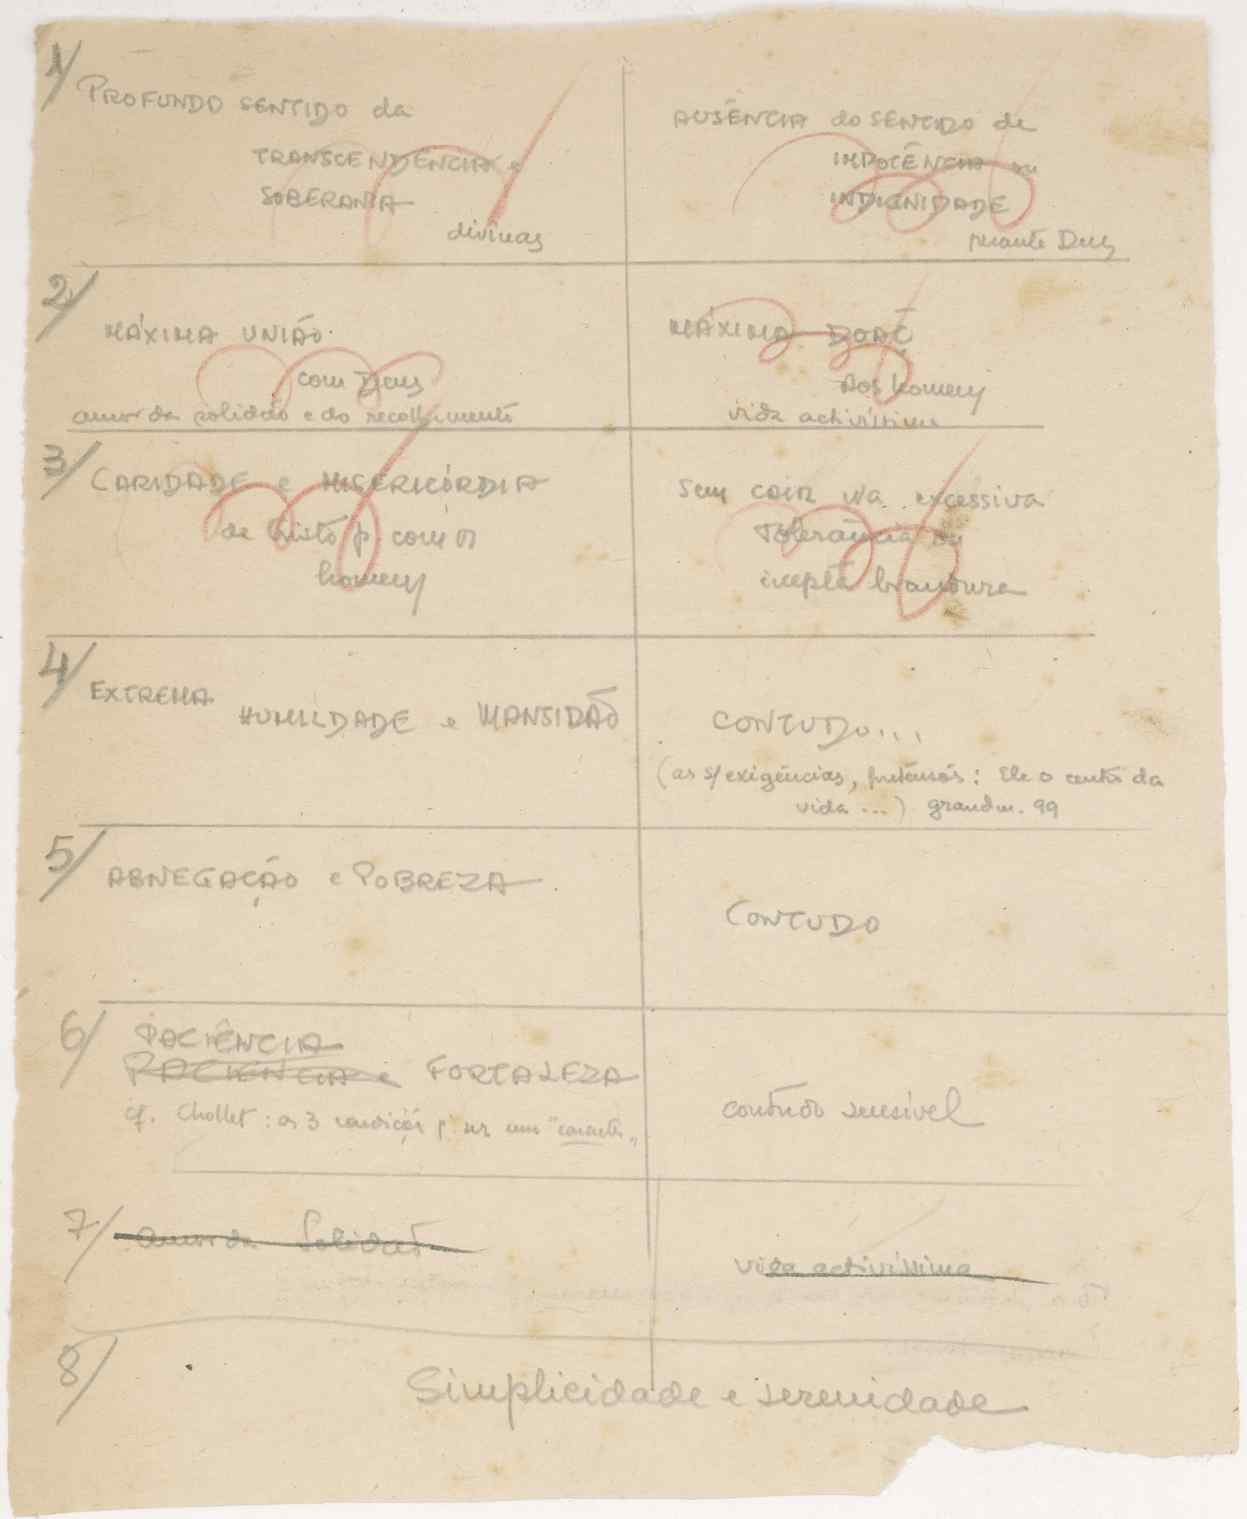 1/ PROFUNDO SENTIDO da
TRANSCENDÊNCIA e
SOBERANIA
divinas
AUSÊNCIA do SENTIDO de
IMPOTÊNCIA ou
INDIGNIDADE
perante Deus
2/
MÁXIMA UNIÃO
com Deus
amor da solidão e do recolhimento
MÁXIMA DOAÇ
aos homens
vida activíssima
3/ CARIDADE e MISERICÓRDIA
de Cristo p. com os
homens
Sem cair na excessiva
tolerância ou
inepta brandura
4/ EXTREMA
HUMILDADE e MANSIDÃO
CONTUDO...
(as s/ exigências, pretensões: Ele o centro da
vida ...) grandm. 99
5/ ABNEGAÇÃO e POBREZA
CONTUDO
6/ PACIÊNCIA
PACIÊNCIA e FORTALEZA
cf. Chollet: as 3 condições p. ser um "caracter"
contudo sensível
7/ amor da Solidão
vida activíssima
8/
Simplicidade e serenidade